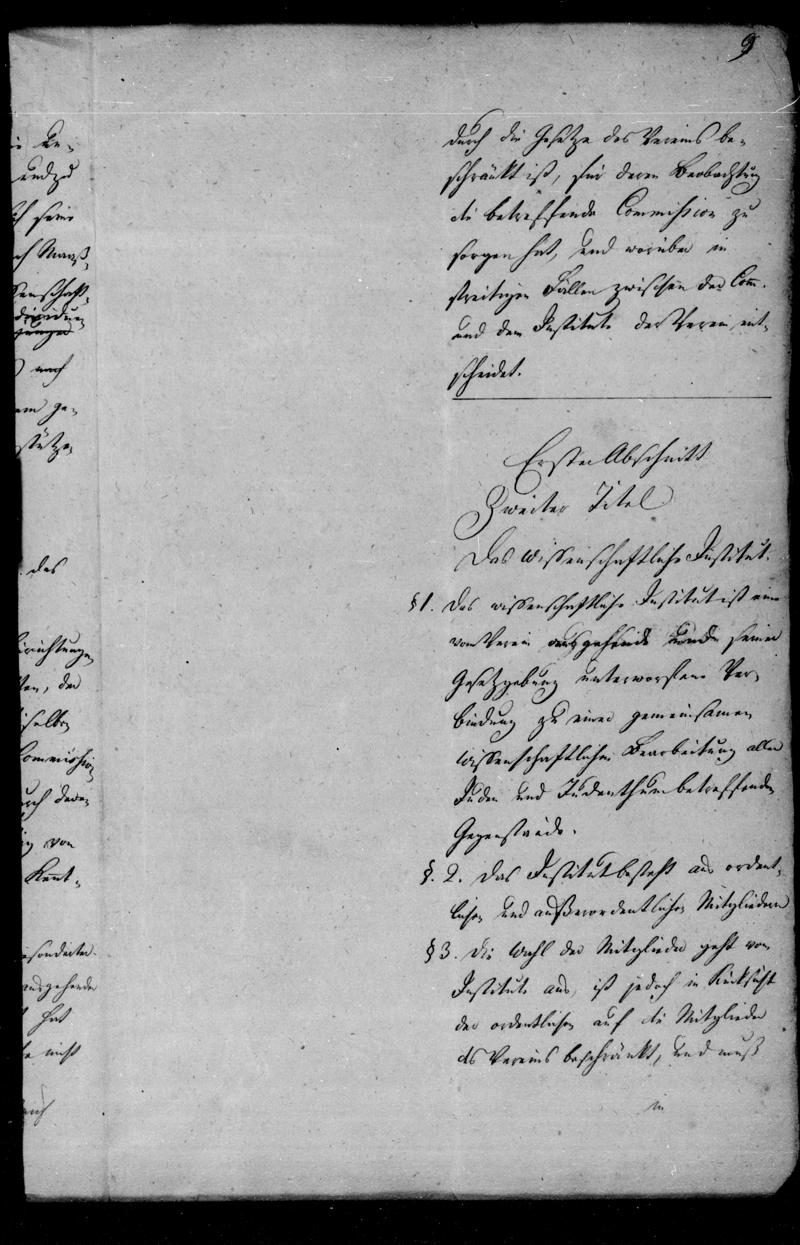 9
durch die Gesetze des Vereins be-
schränkt ist, für deren Beobachtung
die betreffende Commission zu
sorgen hat, und worüber in
streitigen Fällen zwischen der Comm.
und dem Institute der Verein ent-
scheidet.
Erster Abschnitt
Zweiter Titel
Das wissenschaftliche Institut.
§ 1. Das wissenschaftliche Institut ist eine
vom Verein ausgehende und seiner
Gesetzgebung unterworfene Ver-
bindung zu einer gemeinsamen
wissenschaftlichen Bearbeitung aller
Juden und Judenthum betreffenden
Gegenstände.
§. 2. Das Institut besteht aus ordent-
lichen und außerordentlichen Mitgliedern
§ 3. Die Wahl der Mitglieder geht vom
Institute aus, ist jedoch in Rücksicht
der ordentlichen auf die Mitglieder
des Vereins beschränkt, und muß
in
und zu
seine
nach
ge-
des
der
Commission
von
Kennt-
ausgehende
hat
nicht